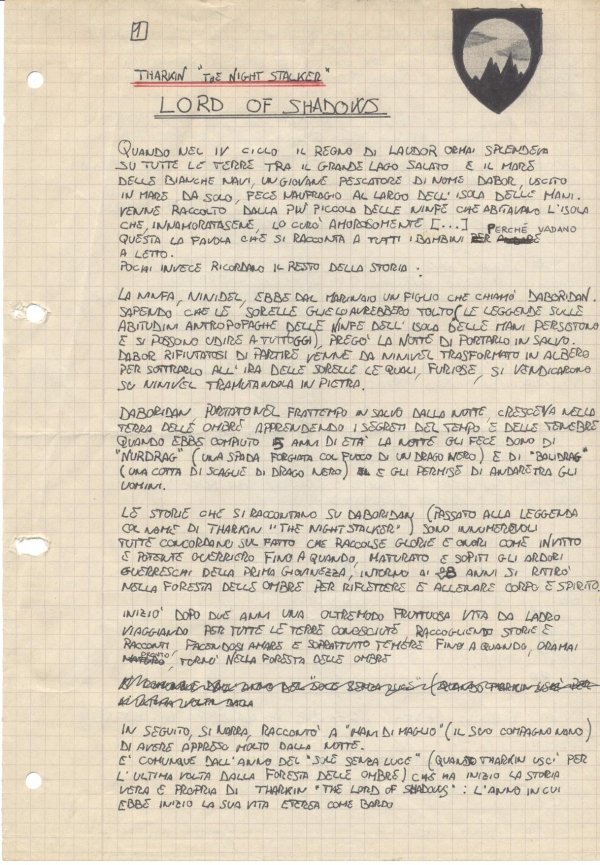 1
THARKIN "THE NIGHT STALKER"
LORD OF SHADOWS
QUANDO NEL IV CICLO IL REGNO DI LAUDOR ORMAI SPLENDEVA
SU TUTTE LE TERRE TRA IL GRANDE LAGO SALATO E IL MARE
DELLE BIANCHE NAVI, UN GIOVANE PESCATORE DI NOME DABOR, USCITO
IN MARE DA SOLO, FECE NAUFRAGIO AL LARGO DELL'ISOLA DELLE MANI.
VENNE RACCOLTO DALLA PIU' PICCOLA DELLE NINFE CHE ABITAVANO L'ISOLA
CHE, INNAMORATASENE, LO CURO' AMOROSAMENTE [...]
QUESTA LA FAVOLA CHE SI RACCONTA A TUTTI I BAMBINI PERCHÉ VADANO
A LETTO.
POCHI INVECE RICORDANO IL RESTO DELLA STORIA.
LA NINFA, NINIDEL, EBBE DAL MARINAIO UN FIGLIO CHE CHIAMO' DABORIDAN.
SAPENDO CHE LE SORELLE GLIELO AVREBBERO TOLTO (LE LEGGENDE SULLE
ABITUDINI ANTROPOFAGHE DELLE NINFE DELL'ISOLA DELLE MANI PERSISTONO
E SI POSSONO UDIRE A TUTT'OGGI), PREGO' LA NOTTE DI PORTARLO IN SALVO.
DABOR RIFIUTATOSI DI PARTIRE VENNE DA NINIVEL TRASFORMATO IN ALBERO
PER SOTTRARLO ALL'IRA DELLE SORELLE LE QUALI, FURIOSE, SI VENDICARONO
SU NINIVEL TRAMUTANDOLA IN PIETRA.
DABORIDAN PORTATO NEL FRATTEMPO IN SALVO DALLA NOTTE, CRESCEVA NELLA
TERRA DELLE OMBRE APPRENDENDO I SEGRETI DEL TEMPO E DELLE TENEBRE
QUANDO EBBE COMPIUTO 5 ANNI DI ETA' LA NOTTE GLI FECE DONO DI
"NURDRAG" (UNA SPADA FORGIATA COL FUOCO DI UN DRAGO NERO) E DI "BALIDRAG"
(UNA COTTA DI SCAGLIE DI DRAGO NERO) E GLI PERMISE DI ANDARE TRA GLI
UOMINI.
LE STORIE CHE SI RACCONTANO SU DABORIDAN (PASSATO ALLA LEGGENDA
COL NOME DI THARKIN "THE NIGHT STALKER") SONO INNUMEREVOLI
TUTTE CONCORDANO SUL FATTO CHE RACCOLSE GLORIE E ONORI COME INVITTO
E POTENTE GUERRIERO FINO A QUANDO, MATURATO E SOPITI GLI ARDORI
GUERRESCHI DELLA PRIMA GIOVINEZZA, INTORNO AI ANNI SI RITIRO'
NELLA FORESTA DELLE OMBRE PER RIFLETTERE E ALLENARE CORPO E SPIRITO.
INIZIO' DOPO DUE ANNI UNA OLTREMODO FRUTTUOSA VITA DA LADRO
VIAGGIANDO PER TUTTE LE TERRE CONOSCIUTE, RACCOGLIENDO STORIE E
RACCONTI, FACENDOSI AMARE E SOPRATTUTTO TEMERE FINO A QUANDO, ORAMAI
PRONTO, TORNO' NELLA FORESTA DELLE OMBRE
IN SEGUITO, SI NARRA, RACCONTO' A "MANI DI MAGLIO" (IL SUO COMPAGNO NANO)
DI AVERE APPRESO MOLTO DALLA NOTTE.
E' COMUNQUE DALL'ANNO DEL "SOLE SENZA LUCE" (QUANDO THARKIN USCI' PER
L'ULTIMA VOLTA DALLA FORESTA DELLE OMBRE) CHE HA INIZIO LA STORIA
VERA E PROPRIA DI THARKIN "THE LORD OF SHADOWS": L'ANNO IN CUI
EBBE INIZIO LA SUA VITA ETEREA COME BARDO